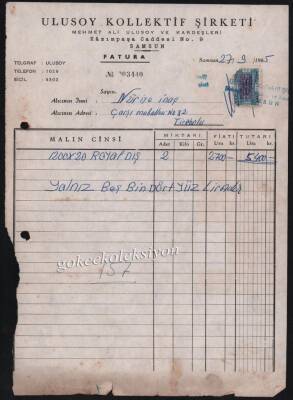 ULUSOY KOLLEKTİF ŞİRKETİ
MEHMET ALİ ULUSOY VE KARDEŞLERİ
Kâzımpaşa Caddesi No. 9
SAMSUN
FATURA
TELGRAF : ULUSOY
TELEFON : 1029
SİCİL : 4302
Samsun 27/9/1965
№ 003440
Sayın:
Alıcının İsmi : Nuriye inaç
Alıcının Adresi : Çarşı mahallesi No 82
Tirebolu
MALIN CİNSİ MİKTARI FİATI TUTARI
Adet Kilo Gr. Lira Kr. Lira Kr.
1200X20 ROYAL DIŞ 2 2700 5400
Yalnız Beş Bin Dört Yüz Liradır
157
gokcekoleksiyon